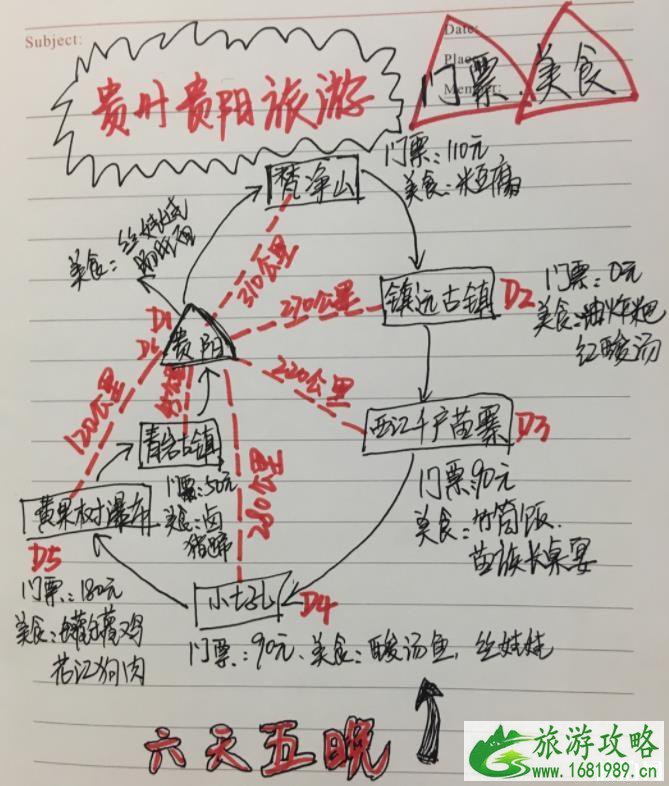 Subject:
Date:
贵州贵阳旅游
门票、美食
门票：110元
美食：米豆腐
梵净山
美食：丝娃娃
310公里
镇远古镇
D2
门票：0元
美食：油炸粑
红酸汤
270公里
D1
D6
贵阳
220公里
西江千户苗寨
D3
门票：90元
美食：竹筒饭、
苗族长桌宴
120公里
青岩古镇
门票：50元
美食：卤
猪蹄
280公里
黄果树瀑布
D5
门票：180元
美食：
花江狗肉
小七孔
D4
门票：90元、美食：酸汤鱼，丝娃娃
六天五晚
旅游攻略
www.1681989.cn